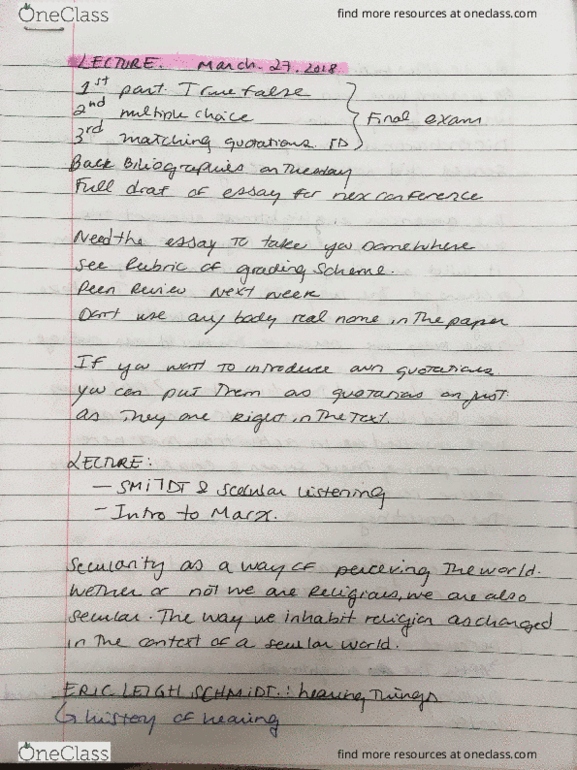 OneClass
find more resources at oneclass.com
LECTURE. March. 27. 2018.
1st part. True false
2nd multiple choice
Final exam
3rd matching quotations. ID
Back Biliographies on Tuesday
Full draft of essay for nex conference
Need the essay to take you somewhere
See Rubric of grading scheme.
Peen Review Next week
Don't use any body real name in the paper
If you want to introduce own quotations
you can put them as quotations or just
as They are Right in The Text.
LECTURE:
- SMITDT & secular listening
- Intro to Marx.
Secularity as a way of perceving The world.
Wether or not we are Religious, we are also
secular. The way we inhabit religion as changed
in the context of a secular world.
ERIC LEIGH SCHMIDT.: hearing Things
history of hearing
OneClass
find more resources at oneclass.com